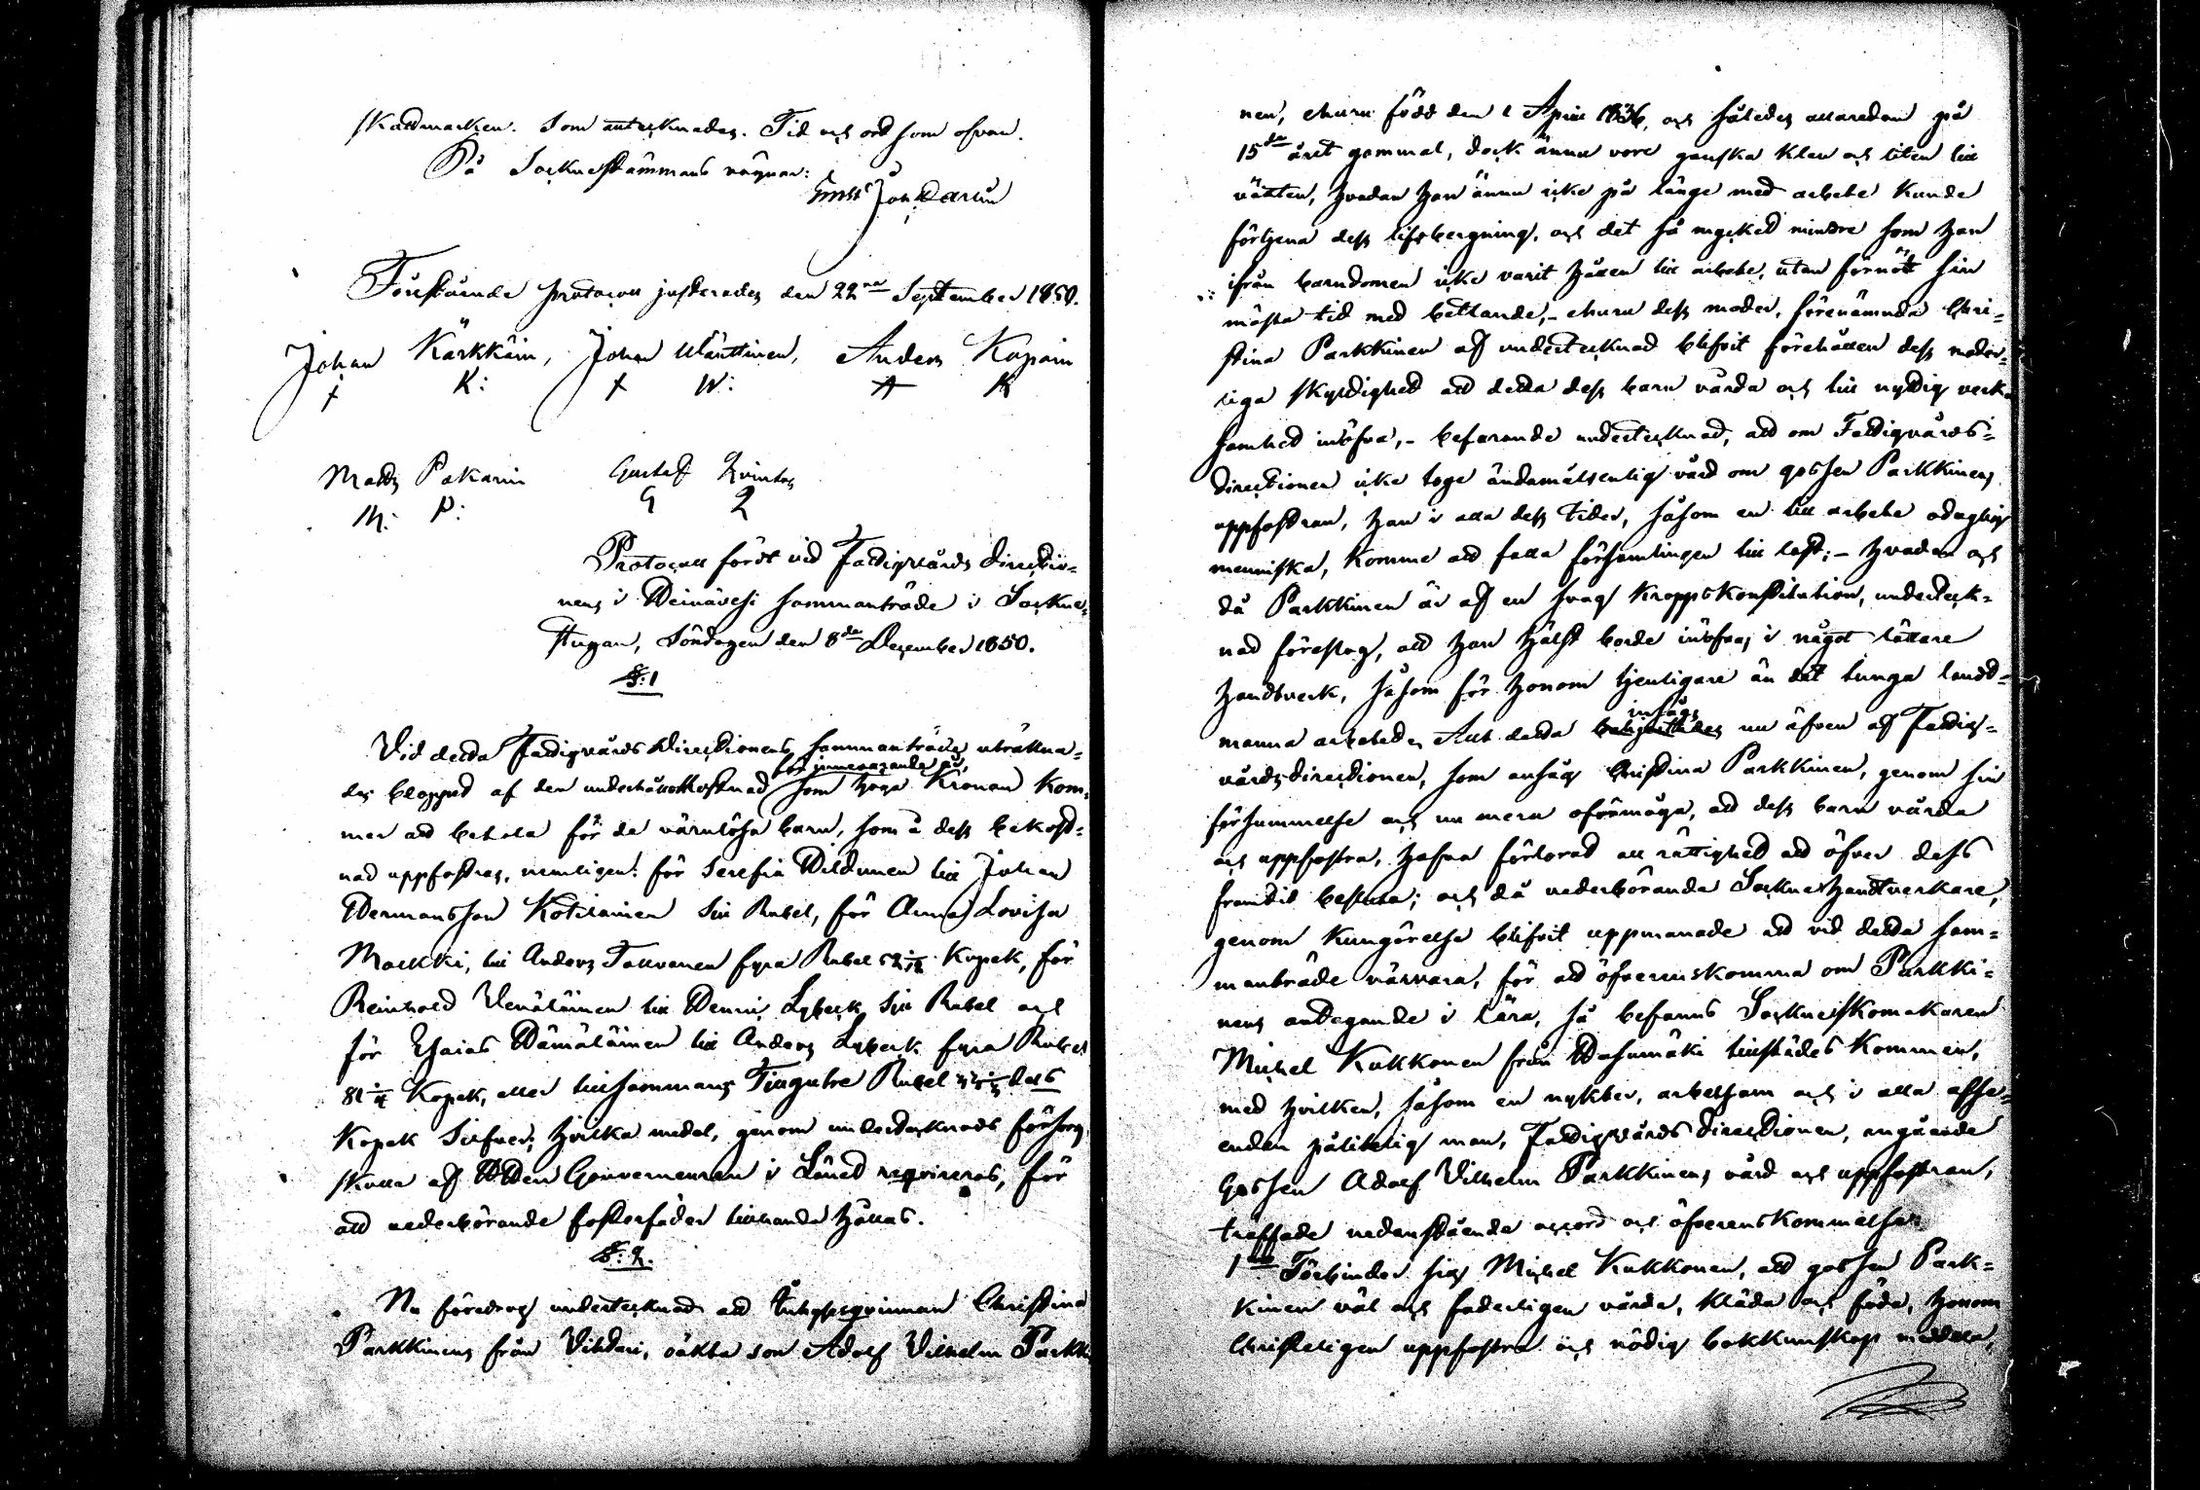 skattmarken. Som antecknades. Tid och ort som ofvan.
På Sockne Stämmans vägnar:
Ernst Joh:
Förestående protocoll justerades den 22ra September 1850.
Johan Kärkkäin, Johan Wänttinen, Anders Kopoin
+ K: + W: A K
Matts Pakarin Gustaf Qvintus
M: P: G Q
Protocoll fördt vid Fattigvårds Directio-
nens i Leinävesi sammanträde i Sockne-
stugan, Söndagen den 8de December 1850.
§: 1
Vid detta Fattigvårds Directionens sammanträde uträkna-
för innevarande år,
des beloppet af den underhållskostnad som höga Kronan kom-
mer att betala för de värnlösa barn, som å dess bekost-
nad uppfostras, nemligen: för Serefia till Johan
Hermansson Kotilainen Sju Rubel, för Anna Lovisa
Malkki, till Anders Tallvanen fyra Rubel Kopek, för
Reinhold Venäläinen till Henric Lybeck Sju Rubel och
för Esaias Hämäläinen till Anders Lybeck fyra Rubel
81 Kopek, eller tillsammans Tjugutre Rubel
Kopek Silfver, hvilka medel, genom undertecknads försorg
skulle af Herr Gouverneuren i Länet requireras, för
att vederbörande fosterfäder tillhanda hållas.
§: 2.
Nu föredrog undertecknad att Inhysesqvinnan Christina
Parkkinens från Vihtari, oäkta son Adolf Vilhelm Parkki-
nen, ehuru född den 1 April 1836, och således allaredan på
15de året gammal, dock ännu vore ganska klen och liten till
växten, hvadan han ännu icke på länge med arbete kunde
förtjena dess lifsbergning, och det så mycket mindre som han
ifrån barndomen icke varit hållen till arbete, utan förnött sin
mästa tid med bettlande, - ehuru dess moder, förenämnda Chri-
stina Parkkinen af undertecknad blifvit förehållen dess moder-
liga skyldighet att detta dess barn vårda och till nyttig verk-
samhet inöfva, - befarande undertecknad, att om Fattigvårds-
directionen icke toge ändamålsenlig vård om gossen Parkkinens
uppfostran, han i alla dess tider, såsom en till arbete oduglig
menniska, komme att falla församlingen till last; - hvadan och
då Parkkinen är af en svag kroppskonstitution, underteck-
nad föreslog, att han hälst borde inöfvas i något lättare
handtverk, såsom för honom tjenligare än det tunga landt-
insågs
manna arbetet. Allt detta nu äfven af Fattig-
vårdsdirectionen, som ansåg Christina Parkkinen, genom sin
försummelse och nu mera oförmåga, att dess barn vårda
och uppfostra, hafva förlorad all rättighet att öfver dess
framtid besluta; och då vederbörande Socknehandtverkare,
genom kungörelse blifvit uppmanade att vid detta sam-
manträde närvara, för att öfverenskomma om Parkki-
nens antagande i lära, så befanns Sockneskomakaren
Michel Kukkonen från Hasumäki tillstädes kommen,
med hvilken, såsom en nykter, arbetsam och i alla afse-
enden pålitelig man, Fattigvårds directionen, angående
Gossen Adolf Vilhelm Parkkinens vård och uppfostran,
träffade nedanstående accord och öfverenskommelse:
1mo Förbinder sig Michel Kukkonen, att gossen Park-
kinen väl och faderligen vårda, kläda och föda, honom
Christeligen uppfostra och nödig bokkunskap meddela,